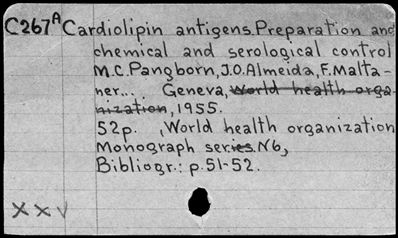 C267A Cardiolipin antigens. Preparation and
chemical and serological control
M.C. Pangborn, J.O. Almeida, F. Malta-
ner... Geneva, world health orga-
nization, 1955.
52p. , World health organization
Monograph series. N6,
Bibliogr.: p. 51-52.
XXV